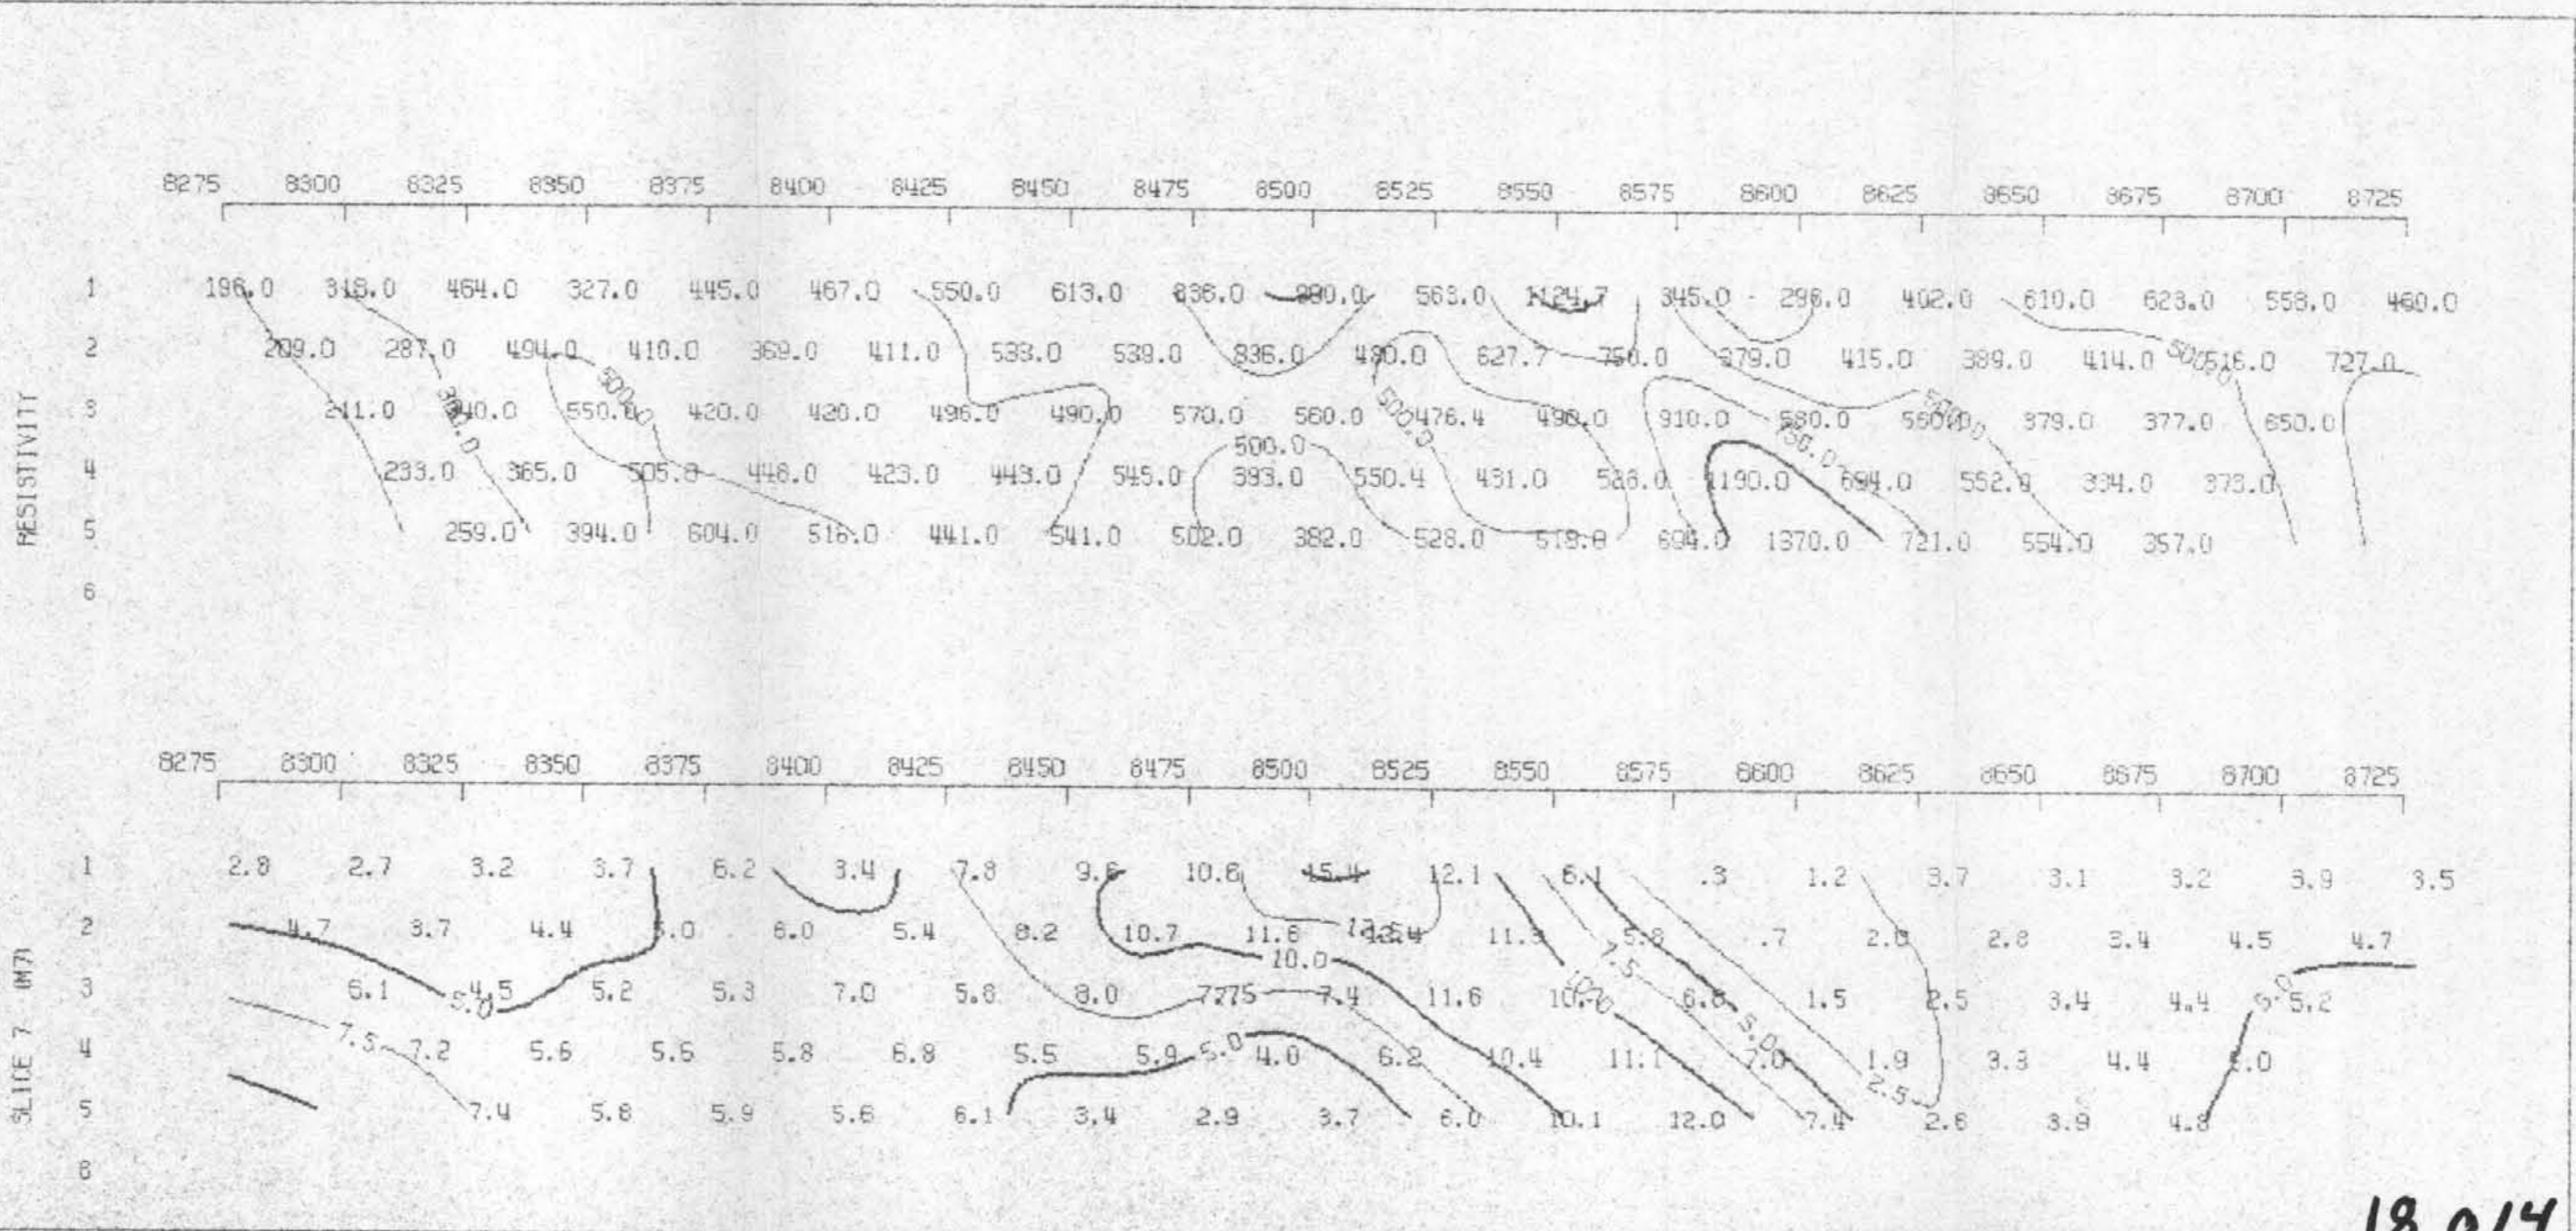 8275 8300 8325 8350 8375 8400 8425 8450 8475 8500 8525 8550 8575 8600 8625 8650 8675 8700 8725
RESISTIVITY
1 196.0 318.0 464.0 327.0 445.0 467.0 550.0 613.0 836.0 563.0 1124.7 345.0 402.0 610.0 623.0 558.0 460.0
2 209.0 287.0 494.0 410.0 369.0 411.0 533.0 539.0 836.0 480.0 627.7 750.0 379.0 415.0 389.0 414.0 516.0 727.0
500.0
3 211.0 550.0 420.0 420.0 496.0 490.0 570.0 560.0 476.4 490.0 910.0 580.0 560.0 379.0 377.0 650.0
300.0 500.0 500.0 500.0 500.0 750.0
4 233.0 365.0 505.8 448.0 423.0 443.0 545.0 393.0 550.4 431.0 528.0 1190.0 694.0 552.0 334.0 373.0
5 259.0 394.0 604.0 516.0 441.0 541.0 502.0 382.0 528.0 519.8 694.0 1370.0 721.0 554.0 357.0
6
8275 8300 8325 8350 8375 8400 8425 8450 8475 8500 8525 8550 8575 8600 8625 8650 8675 8700 8725
SLICE 7 (M7)
1 2.8 2.7 3.2 3.7 6.2 3.4 7.8 9.6 10.6 15.4 12.1 6.1 .3 1.2 3.7 3.1 3.2 3.9 3.5
2 4.7 3.7 4.4 5.0 6.0 5.4 8.2 10.7 11.6 11.3 5.8 .7 2.0 2.8 3.4 4.5 4.7
10.0 7.5
3 6.1 4.5 5.2 5.3 7.0 5.8 8.0 7.4 11.6 10.7 6.8 1.5 2.5 3.4 4.4 5.2
5.0 10.0 5.0
4 7.5 7.2 5.6 5.6 5.8 6.8 5.5 5.9 5.0 4.0 6.2 10.4 11.1 7.0 5.0 1.9 3.3 4.4 5.0
5 7.4 5.8 5.9 5.6 6.1 3.4 2.9 3.7 6.0 10.1 12.0 7.4 2.5 2.6 3.9 4.8
6